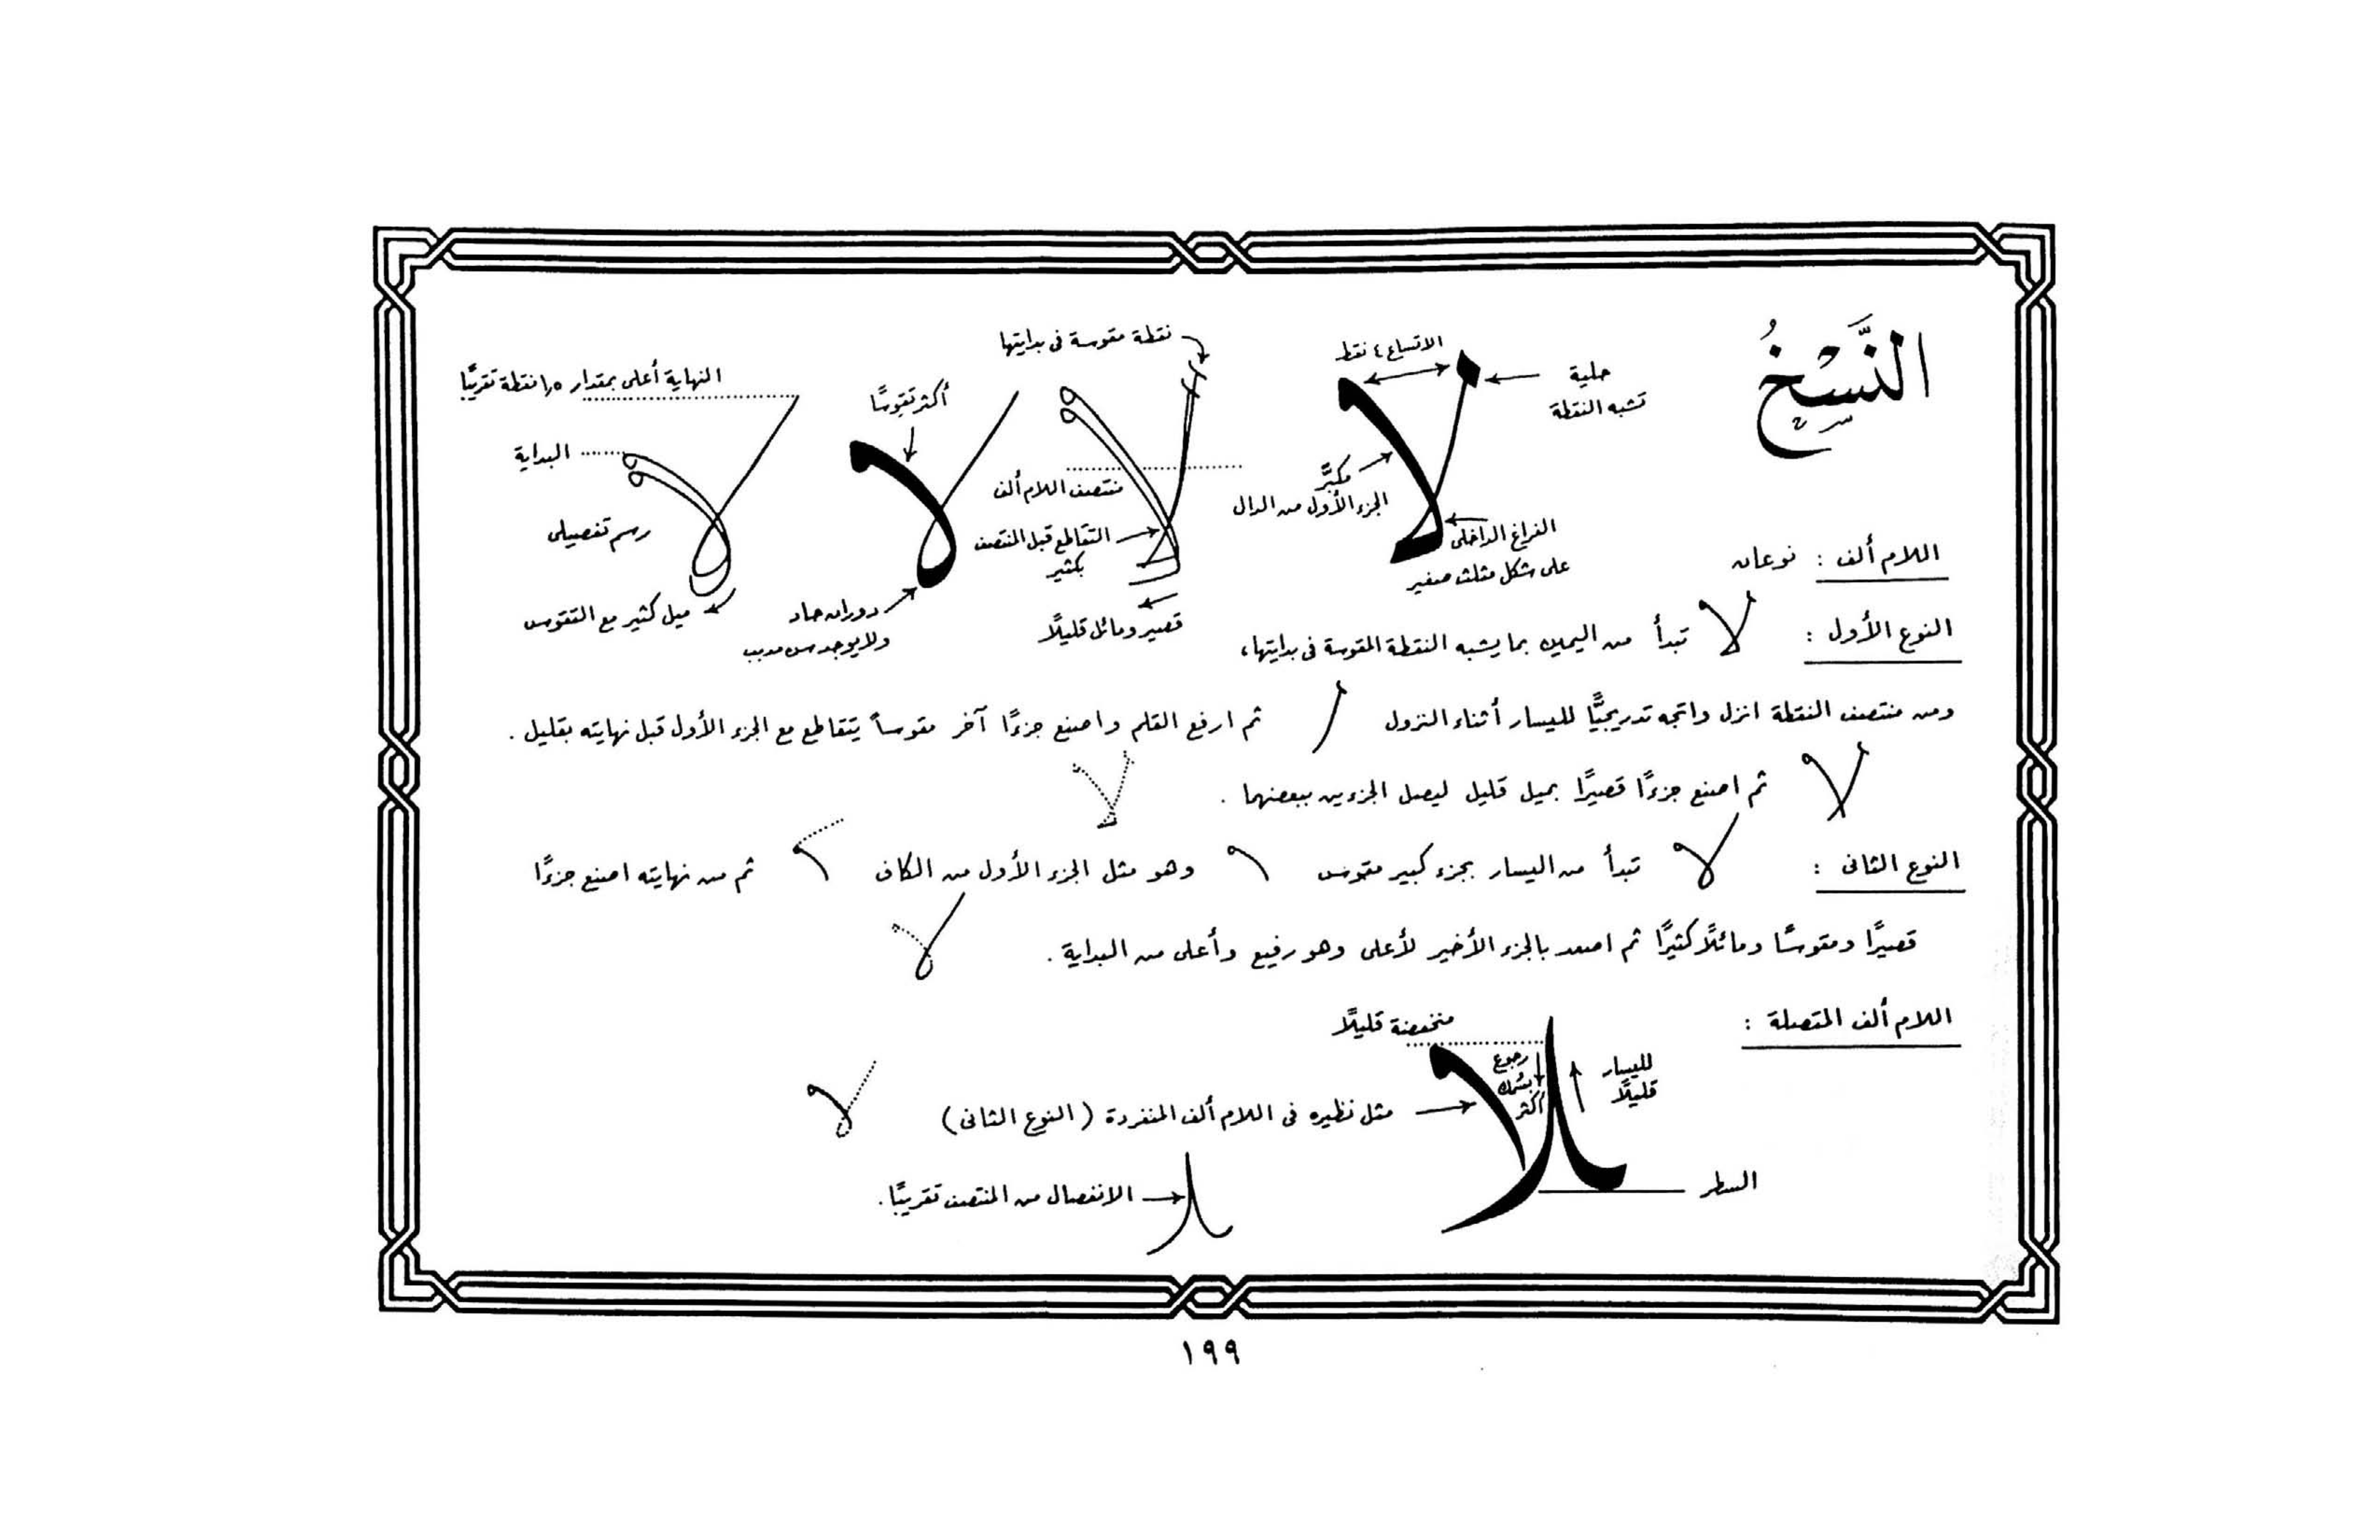 النَّسْخُ
الاتساع ٤ نقط
حلية
تشبه النقطة
مكبَّر
الجزء الأول من الدال
الفراغ الداخلى
على شكل مثلث صغير
نقطة مقوسة فى بدايتها
منتصف اللام ألف
التقاطع قبل المنتصف
بكثير
قصير ومائل قليلًا
أكثر تقوسًا
دوران حاد
ولا يوجد سن مدبب
النهاية أعلى بمقدار ١,٥ نقطة تقريبًا
البداية
رسم تفصيلى
ميل كثير مع التقوس
اللام ألف : نوعان
النوع الأول : لا تبدأ من اليمين بما يشبه النقطة المقوسة فى بدايتها،
ومن منتصف النقطة انزل واتجه تدريجيًّا لليسار أثناء النزول ثم ارفع القلم واصنع جزءًا آخر مقوساً يتقاطع مع الجزء الأول قبل نهايته بقليل .
ثم اصنع جزءًا قصيرًا بميل قليل ليصل الجزءين ببعضهما .
النوع الثانى : لا تبدأ من اليسار بجزء كبير مقوس وهو مثل الجزء الأول من الكاف ثم من نهايته اصنع جزءًا
قصيرًا ومقوسًا ومائلًا كثيرًا ثم اصعد بالجزء الأخير لأعلى وهو رفيع وأعلى من البداية .
اللام ألف المتصلة :
منخفضة قليلًا
لليسار
قليلًا
رجوع
بسُمك
أكثر
مثل نظيره فى اللام ألف المنفردة (النوع الثانى)
السطر
الانفصال من المنتصف تقريبًا.
١٩٩